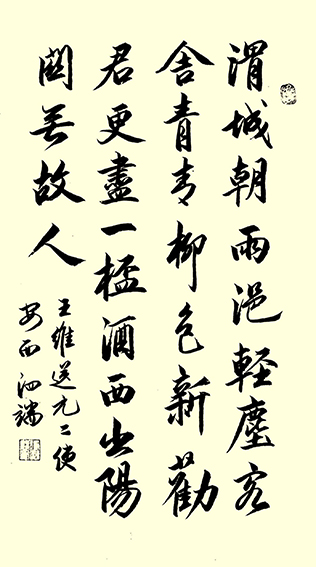 渭城朝雨浥輕塵客
舍青青柳色新勸
君更盡一桮酒西出陽
關無故人
王維送元二使
安西